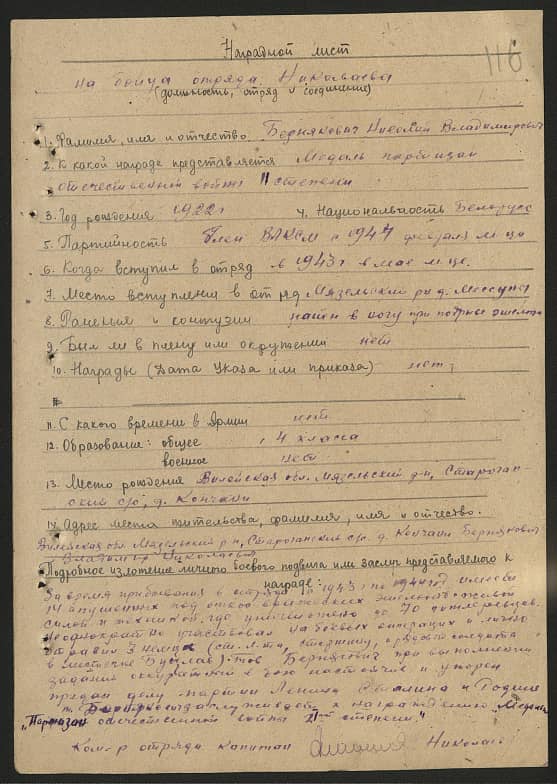 Наградной лист
116
на бойца отряда Николаева
(должность, отряд и соединение)
1. Фамилия, имя и отчество Бернякович Николай Владимирович
2. К какой награде представляется Медаль партизан
отечественной войны II степени
3. Год рождения 1922 г 4. Национальность Белорус
5. Партийность Член ВЛКСМ с 1944 февраля м-ца
6. Когда вступил в отряд в 1943 г в мае м-це.
7. Место вступления в отряд Мядельский р-н д.
8. Ранения и контузии ранен в ногу при подрыве эшелона
9. Был ли в плену или окружении нет
10. Награды (Дата Указа или приказа) нет
11. С какого времени в Армии нет
12. Образование: общее 4 класса
военное нет
13. Место рождения Вилейская обл. Мядельский р-н, Старогат-
ский с/с, д. Кончани
14. Адрес места жительства, фамилия, имя и отчество.
Вилейская обл. Мядельский р-н, Старогатский с/с. д. Кончани Бернякович
Владимир Николаевич
Подробное изложение личного боевого подвига или заслуг представляемого к
награде:
За время пребывания в отряде с 1943 г по 1944 год имеет
14 спущенных под откос вражеских эшелонов с живой
силой и техникой, где уничтожено до 70
Неоднократно участвовал на боевых операциях и лично
3 немца
в местечке Будслав). Тов Бернякович при выполнении
задания аккуратный в бою настойчив и упорен
предан делу партии Ленина Сталина и Родине
т. Бернякович заслуживает к награждению Медаль
"Партизан отечественной войны II ой степени."
Ком-р отряда капитан Николаев